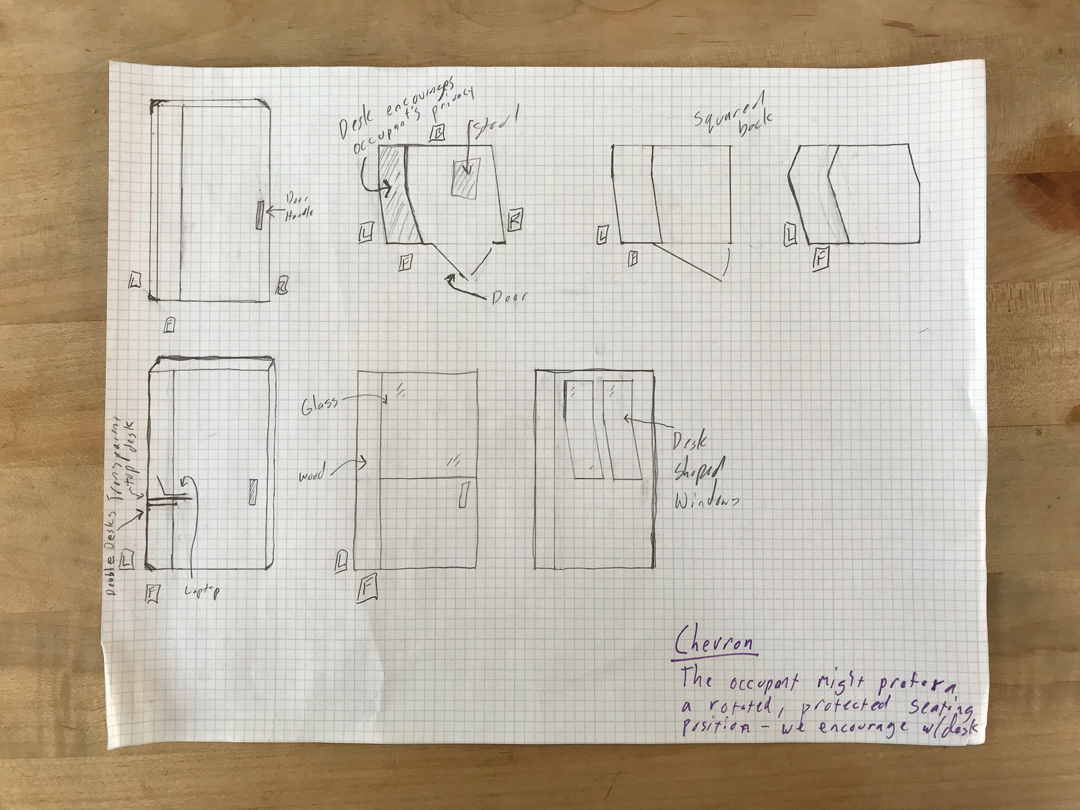 Door
Handle
L
F
R
Desk encourages
occupant's privacy
B
Stool
L
F
R
Door
Squared
back
L
B
L
F
Double Desks Transparent
top desk
L
F
Laptop
Glass
Wood
L
F
Desk
Shaped
Windows
Chevron
The occupant might prefer
a rotated, protected seating
position – we encourage w/desk